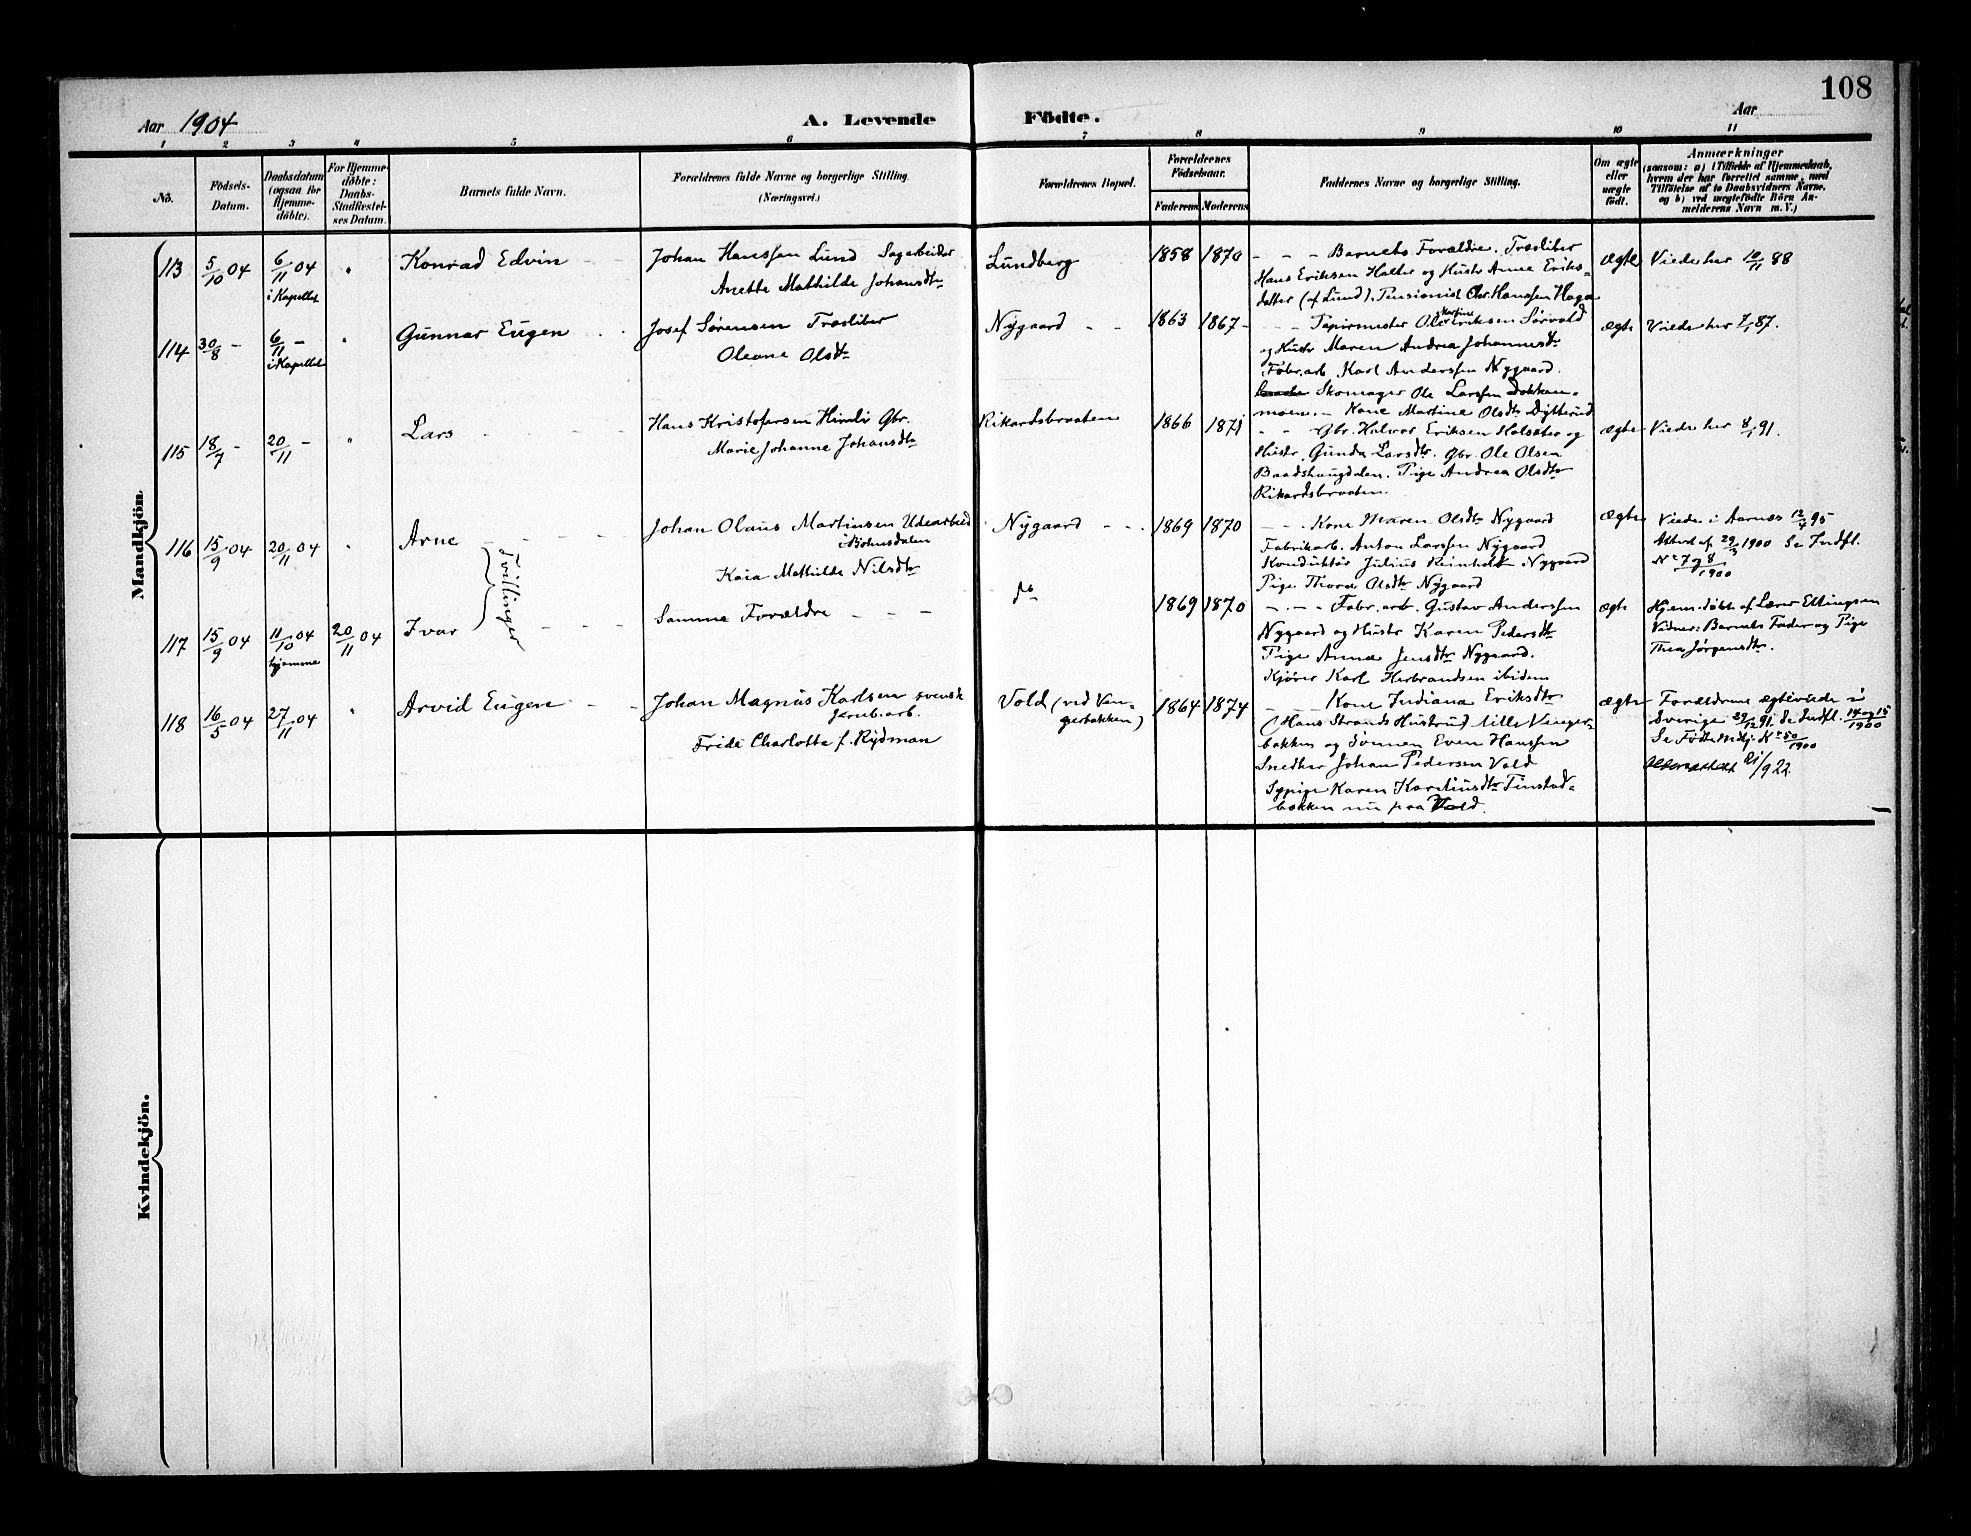 108
Aar 1904
A. Levende Födte.
Aar
1 2 3 4 5 6 7 8 9 10 11
No.
Födsels-
Datum.
Daabsdatum
(ogsaa for
Hjemme-
døbte).
For Hjemme-
døbte:
Daabs-
Stadfæstel-
ses Datum.
Barnets fulde Navn.
Forældrenes fulde Navne og borgerlige Stilling.
(Næringsvei.)
Forældrenes Bopæl.
Forældrenes
Födselsaar.
Faderens Moderens
Faddernes Navne og borgerlige Stilling.
Om ægte
eller
uægte
født.
Anmærkninger
(saasom: a) i Tilfælde af Hjemmedaab,
hvem der har forrettet samme, med
Tilføielse af to Daabsvidners Navne,
og b) ved uægtefödte Börn An-
melderens Navn m. V.)
Mandkjön.
113 5/10 04 6/11 04 "
i Kapellet
Konrad Edvin
Johan Hanssen Lund Sagarbeider
Anette Mathilde Johansdtr
Lundberg
1858 1870
Barnets Forældre. Træsliber
Hans Eriksen Holter og Hustr Anne Eriks-
datter (af Lund). Pensionist Chr. Hanssen Haga
ægte
Viede her 10/11 88
114 30/8 - 6/11 - "
i Kapellet
Gunnar Eugen
Josef Sørensen Træsliber
Oleane Olsdtr
Nygaard
1863 1867
Martine
Papirmester Ole Eriksen Sörvald
og Hustr Maren Andrea Johannesdtr
Fabr.arb Karl Anderssen Nygaard.
Skomager Ole Larssen Dokken-
moen. - Kone Martine Olsdtr Dytterud
ægte
Viede her 7/1 87.
115 18/7 - 20/11 - "
Lars
Hans Kristofersen Himli Gbr.
Marie Johanne Johansdtr
Rikardsbraaten
1866 1871
Gbr. Halvor Eriksen Holsæter og
Hustr. Gunda Larsdtr. Gbr. Ole Olsen
Baadshaugdalen. Pige Andrea Olsdtr
Rikardsbraaten.
ægte
Viede her 8/1 91.
116 15/9 04 20/11 04 "
Arne
Tvillinger
Johan Olaus Martinsen Udearbeid
i Bøhnsdalen
Kaia Mathilde Nilsdtr
Nygaard
1869 1870
Kone Maren Olsdtr Nygaard
Fabrikarb. Anton Larssen Nygaard
Konduktör Julius Reinholt Nygaard
Pige Thora Olsdtr Nygaard
ægte
Viede i Aarnæs 12/4 95
Attest af 29/3 1900 Se Indfl.
No 7 og 8/1900
117 15/9 04 11/10 04 20/11 04
hjemme
Ivar
Samme Forældre
do
1869 1870
Fabr. arb. Gustav Anderssen
Nygaard og Hustr Karen Pedersdtr
Pige Anna Jensdtr Nygaard.
Kjører Karl Herbrandsen ibidem
ægte
Hjem.døbt af Lærer Ellingsen
Vidner: Barnets Fader og Pige
Thea Jørgensdtr.
118 16/5 04 27/11 04 "
Arvid Eugen
Johan Magnus Karlsen svensk
Jernb.arb.
Frida Charlotta f. Rydman
Vold (ved Ven-
gerbakken)
1864 1874
Kone Indiana Eriksdtr
(Hans Strands Hustru) lille Venger-
bakken og Sønnen Even Hanssen
Snedker Johan Pedersen Vold
Sypige Karen Kareliusdtr Finstad-
bakken nu paa Vold.
ægte
Forældrene ægteviede i
Sverige 29/12 91. Se Indfl. 14 og 15/1900
Se Födte Mdkj. No 50/1900
21/9 22.
Kvindekjön.